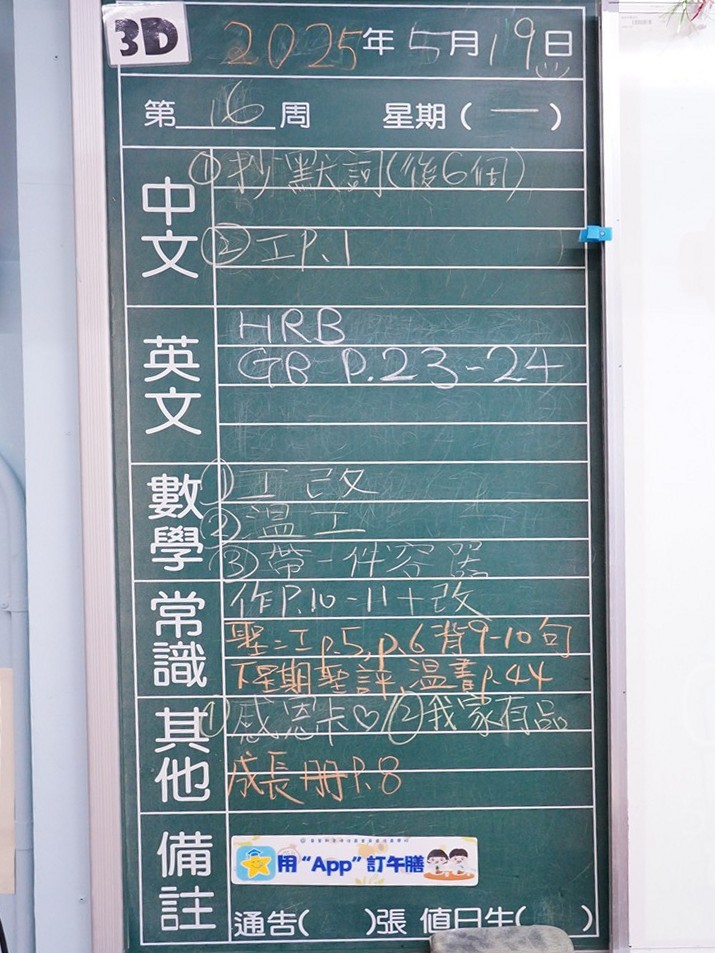 3D 2025年5月19日
第16周 星期(一)
中文
①抄默詞(後6個)
②工P.1
英文
HRB
GB P.23-24
數學
①工改
②溫工
③帶一件容器
常識
作P.10-11+改
聖:工p.5,p.6背9-10句
下星期聖評,溫書p.44
其他
①感恩卡♡ ②我家有品
成長冊P.8
備註
用“App”訂午膳
通告( )張 值日生( )